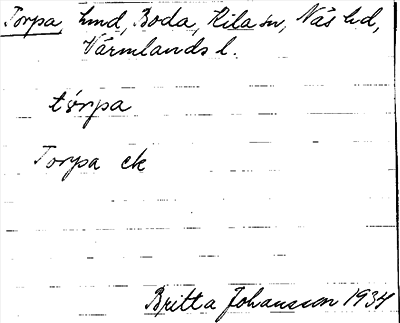 Torpa, hmd, Boda, Kila sn, Näs hd,
Värmlands l.
tórpa
Torpa ek
Britta Johansson 1934